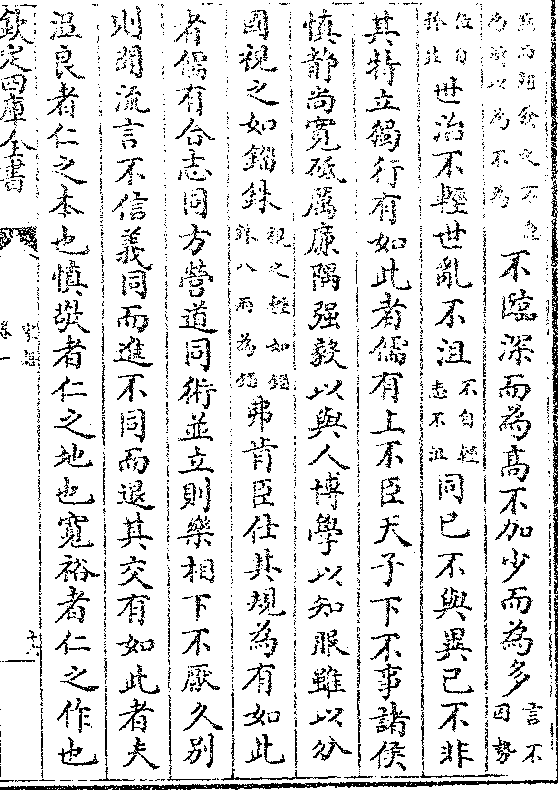 默而翹發之不急為所以為不為不臨深而為高不加少而為多言不因勢
位自矜莊世治不輕世亂不沮不自輕志不沮同己不與異己不非
其特立獨行有如此者儒有上不臣天子下不事諸侯
慎静尚寛砥厲廉隅强毅以與人博學以知服雖以分
國視之如錙銖視之輕如錙銖八兩為錙弗肯臣仕其規為有如此
者儒有合志同方營道同術並立則樂相下不厭久别
則聞流言不信義同而進不同而退其交有如此者夫
温良者仁之本也慎敬者仁之地也寛裕者仁之作也
欽定四庫全書
家語
卷一